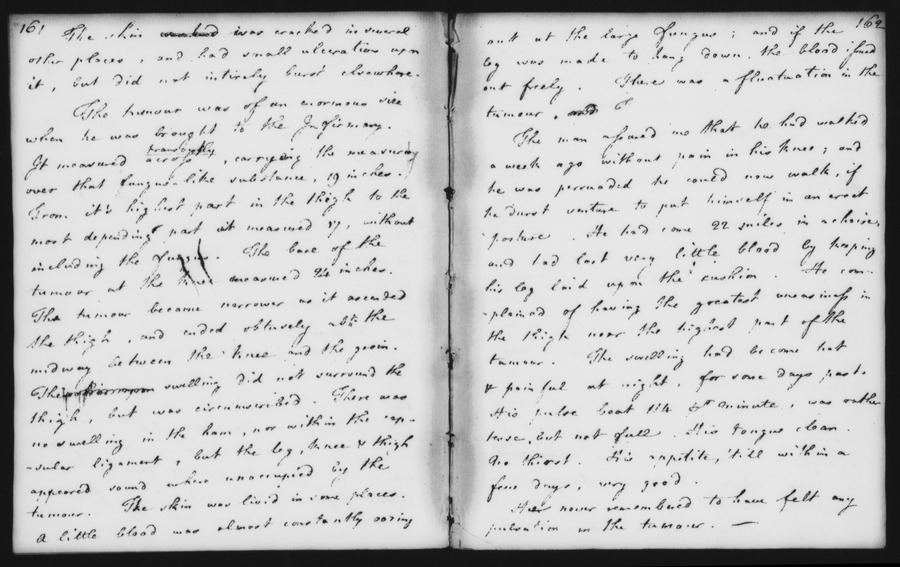 161
The skin was cracked in several
other places, and had small ulcerations upon
it, but did not intirely burst elsewhere.
The tumour was of an enormous size
when he was brought to the Infirmary.
It measured across transversely, carrying the measuring
over that fungus-like substance, 19 inches.
From it's highest part in the thigh to the
most depending part it measured 17, without
including the fungus. The base of the
tumour at the knee measured 24 inches.
The tumour became narrower as it ascended
the thigh, and ended obtusely abt. the
midway between the knee and the groin.
The swelling did not surround the
thigh, but was circumscribed. There was
no swelling in the ham, nor within the cap-
-sular ligament; but the leg, knee & thigh
appeared sound where unoccupied by the
tumour. The skin was livid in some places.
A little blood was almost constantly oozing
162
out at the large fungus; and if the
leg was made to hang down, the blood issued
out freely. There was a fluctuation in the
tumour.
The man assured me that he had walked
a week ago without pain in his knee; and
he was persuaded he could now walk, if
he durst venture to put himself in an erect
posture. He had come 22 miles in a chaise,
and had lost very little blood by keeping
his leg laid upon the cushion. He com-
-plained of having the greatest uneasiness in
the thigh near the highest part of the
tumour. The swelling had become hot
& painful at night, for some days past.
His pulse beat 114 pr minute, was rather
tense, but not full. His tongue clean.
No thirst. His appetite, 'till within a
few days, very good.
He never remembered to have felt any
pulsation in the tumour. —